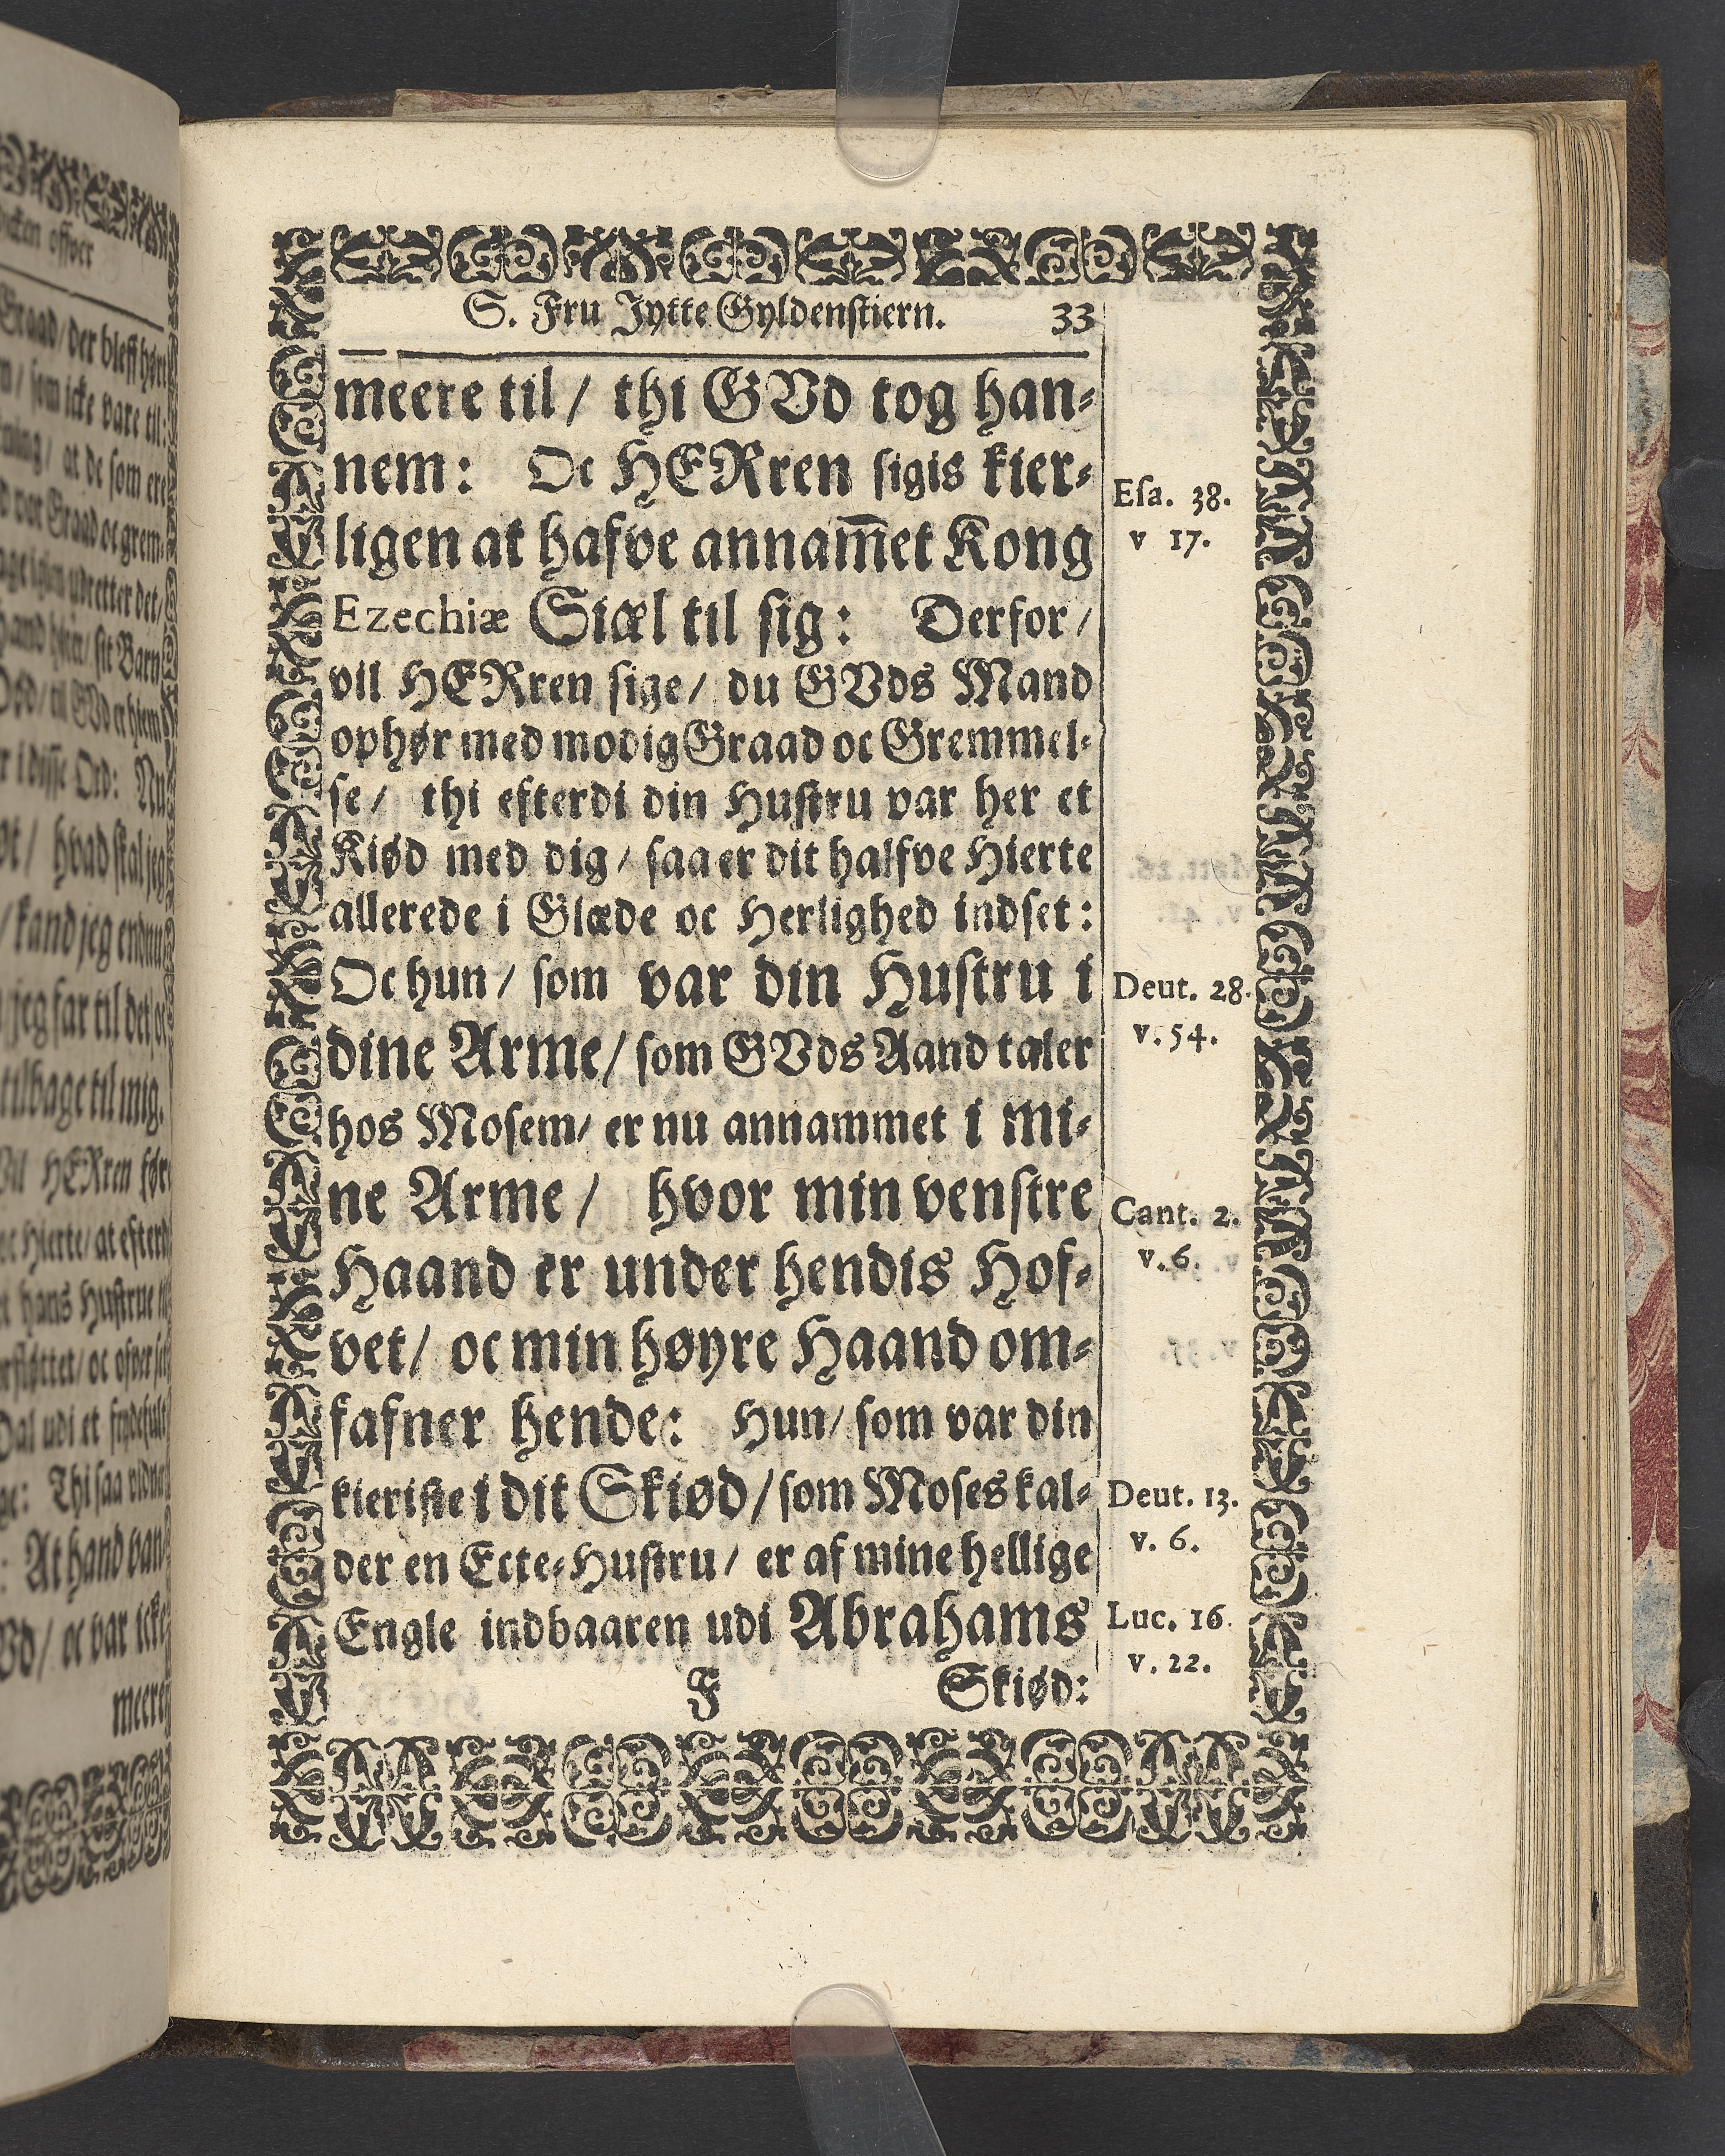 S. Fru Jytte Gyldenstiern. 33
meere til / thi GVd tog han-
nem: Oc HERren sigis kier-
ligen at hafve annam̅et Kong
Ezechiæ Siæl til sig: Derfor /
vil HERren sige / du GVds Mand
ophør med modig Graad oc Gremmel-
se / thi efterdi din Hustru var her et
Kiød med dig / saa er dit halfve Hierte
allerede i Glæde oc Herlighed indset:
Oc hun / som var din Hustru i
dine Arme / som GVds Aand taler
hos Mosem / er nu annammet i mi-
ne Arme / hvor min venstre
Haand er under hendis Hof-
vet / oc min høyre Haand om-
fafner hende: Hun / som var din
kieriste i dit Skiød / som Moses kal-
der en Ecte-Hustru / er af mine hellige
Engle indbaaren udi Abrahams
F Skiød:
Esa. 38.
v 17.
Deut. 28.
v. 54.
Cant. 2.
v. 6.
Deut. 13.
v. 6.
Luc. 16.
v. 22.